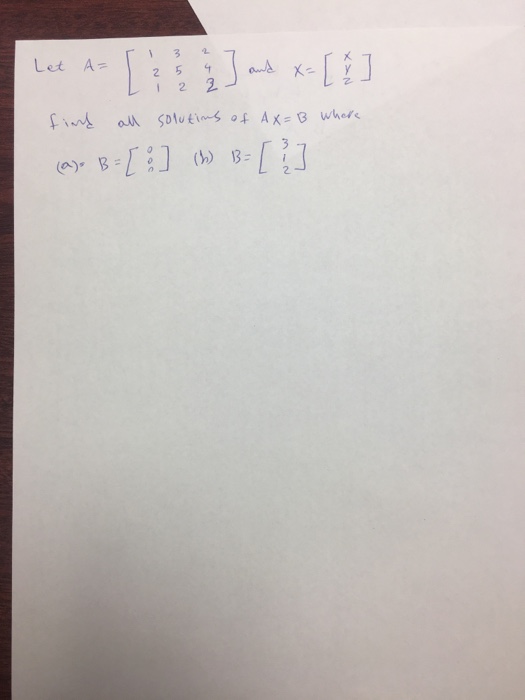 Let A = [ 1 3 2 ; 2 5 4 ; 1 2 2 ] and X = [ x ; y ; z ]
find all solutions of AX = B where
(a) B = [ 0 ; 0 ; 0 ] (b) B = [ 3 ; 1 ; 2 ]